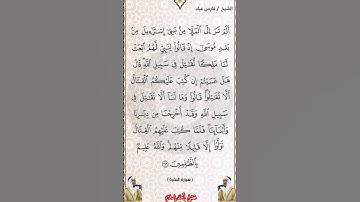 الشيخ / فارس عباد
أَلَمْ تَرَ إِلَى ٱلْمَلَإِ مِنۢ بَنِىٓ إِسْرَٰٓءِيلَ مِنۢ
بَعْدِ مُوسَىٰٓ إِذْ قَالُوا۟ لِنَبِىٍّ لَّهُمُ ٱبْعَثْ
لَنَا مَلِكًا نُّقَٰتِلْ فِى سَبِيلِ ٱللَّهِ قَالَ
هَلْ عَسَيْتُمْ إِن كُتِبَ عَلَيْكُمُ ٱلْقِتَالُ
أَلَّا تُقَٰتِلُوا۟ قَالُوا۟ وَمَا لَنَآ أَلَّا نُقَٰتِلَ فِى
سَبِيلِ ٱللَّهِ وَقَدْ أُخْرِجْنَا مِن دِيَٰرِنَا
وَأَبْنَآئِنَا فَلَمَّا كُتِبَ عَلَيْهِمُ ٱلْقِتَالُ
تَوَلَّوْا۟ إِلَّا قَلِيلًا مِّنْهُمْ وَٱللَّهُ عَلِيمٌۢ
بِٱلظَّٰلِمِينَ
( سورة البقرة )